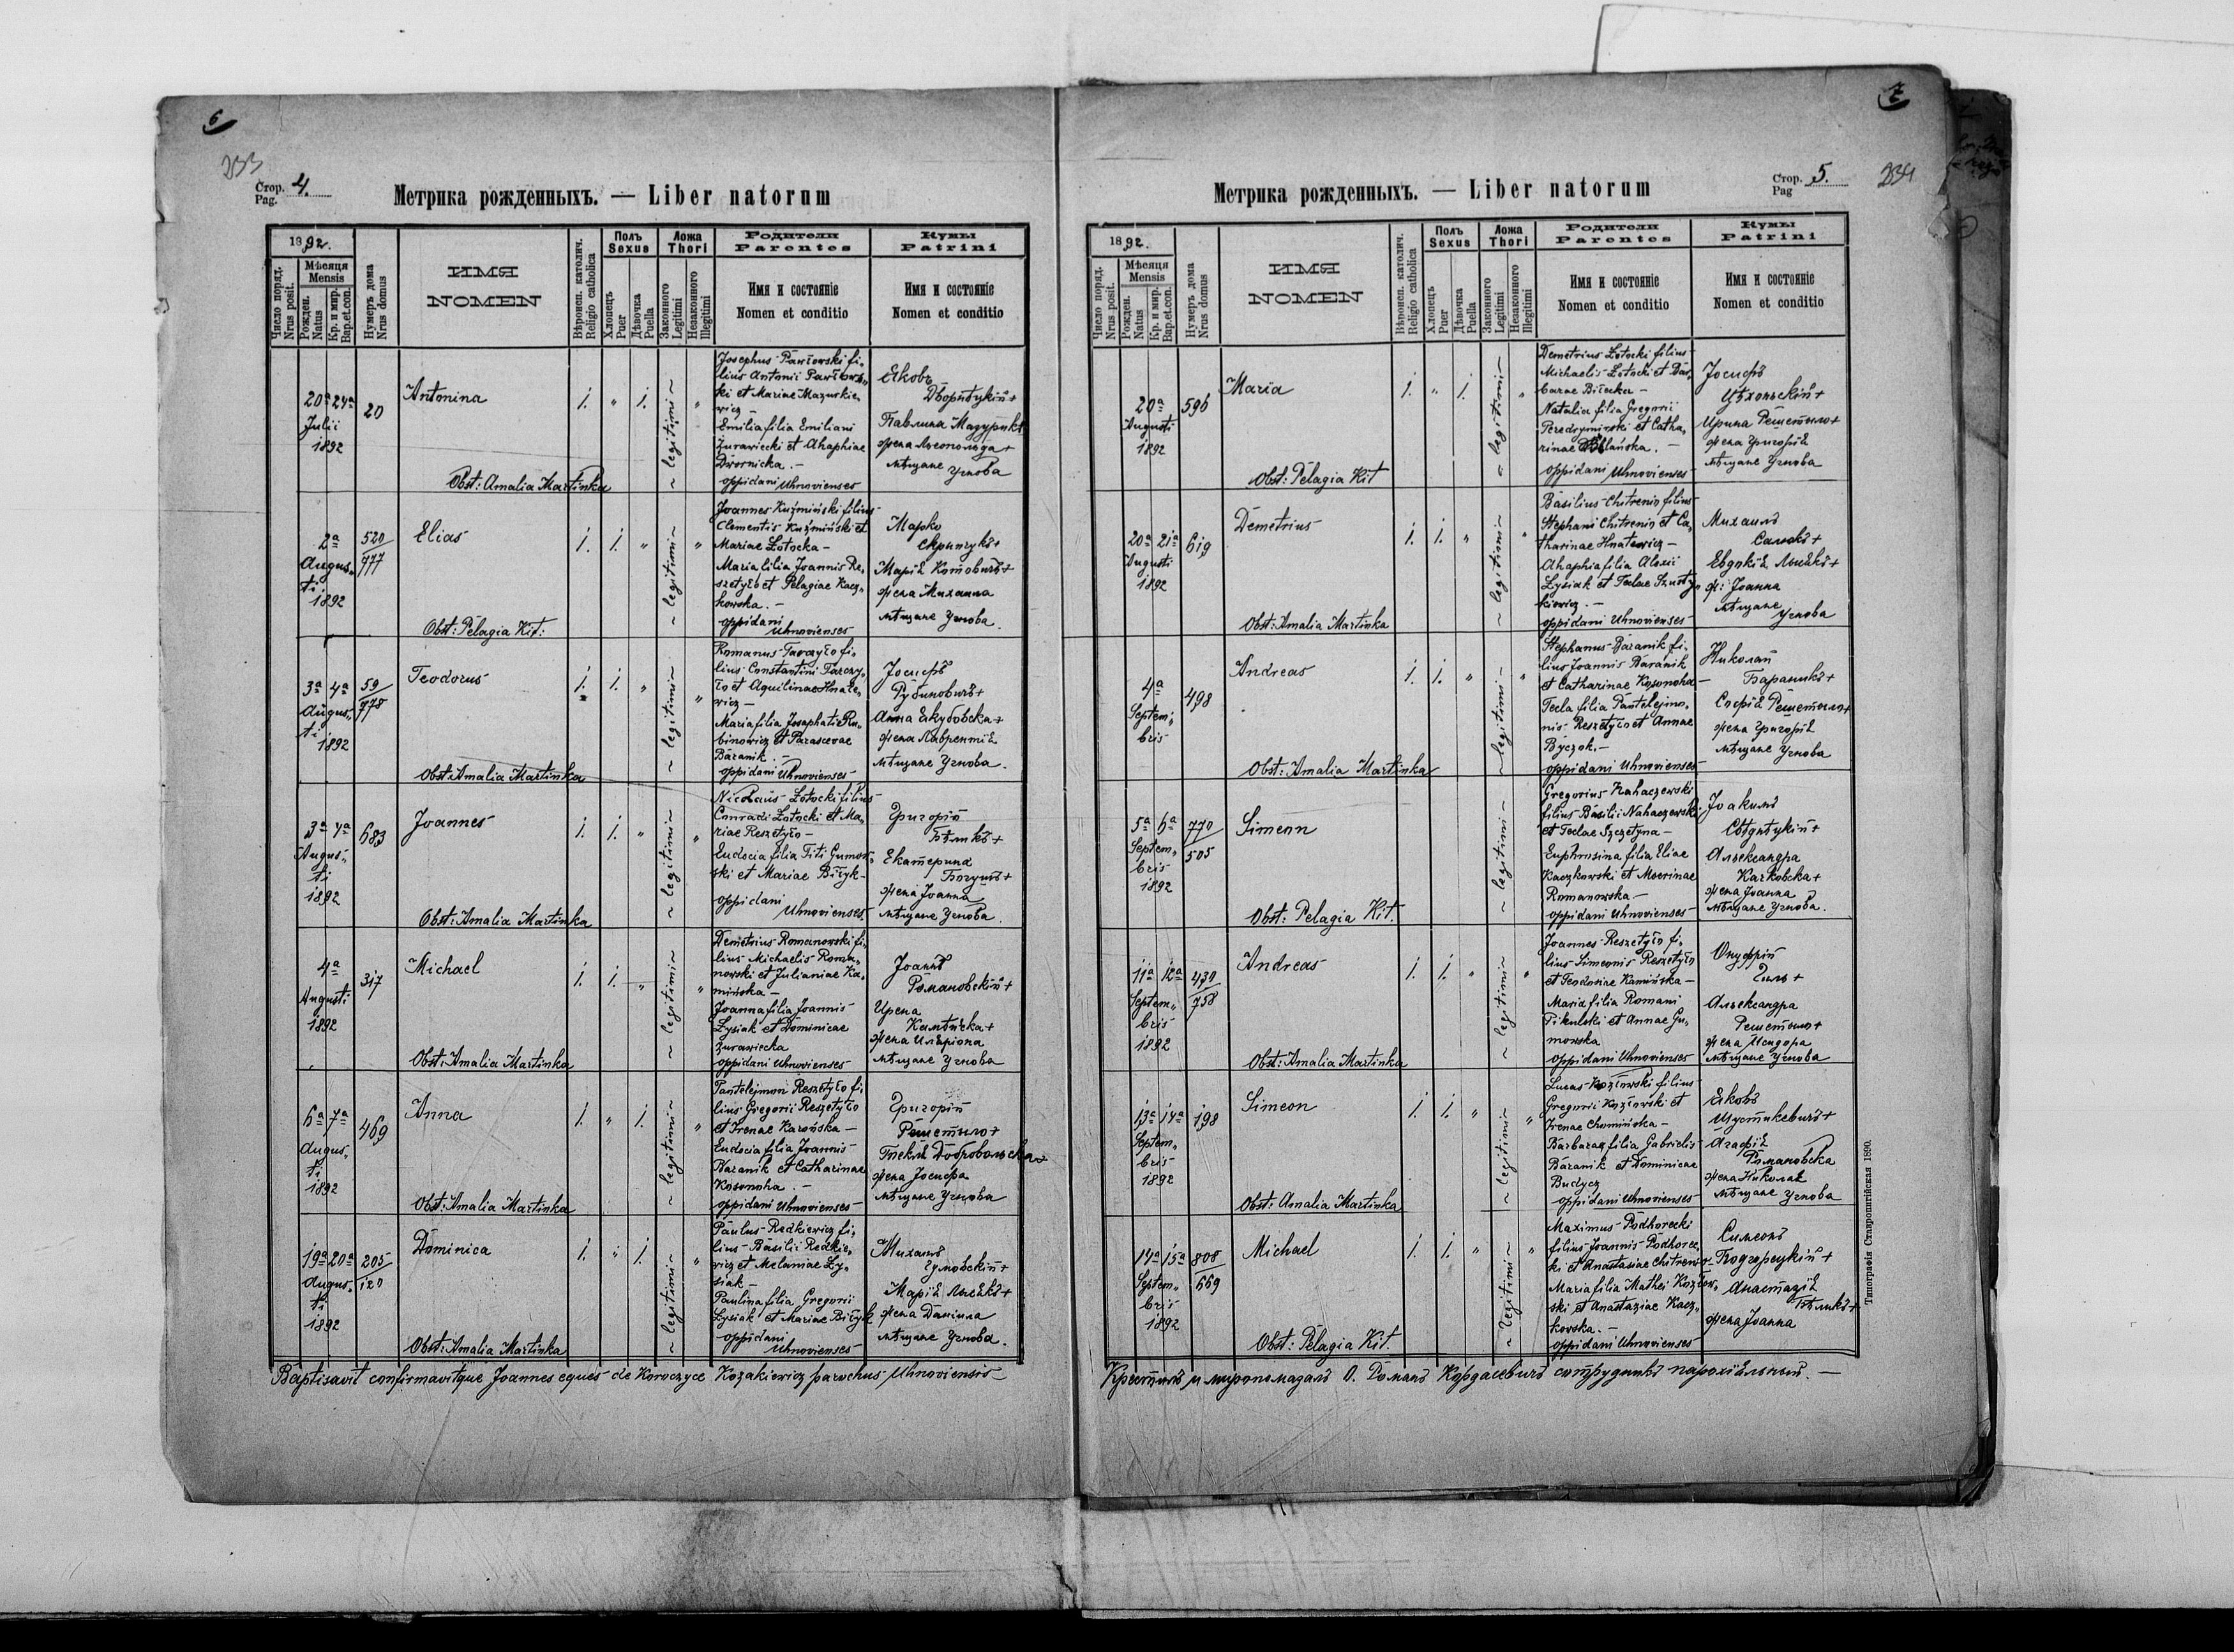 6
233
Стор. 4.
Pag.
Метрика рожденныхъ. — Liber natorum
1892.
Число поряд.
Nrus posit.
Мѣсяця
Mensis
Рожден.
Natus
Кр. и мир.
Bap.et.con.
Нумеръ дома
Nrus domus
ИМЯ
NOMEN
Вѣроисп. католич.
Religio catholica
Полъ
Sexus
Хлопецъ
Puer
Дѣвочка
Puella
Ложа
Thori
Законного
Legitimi
Незаконного
Illegitimi
Родители
Parentes
Имя и состояніе
Nomen et conditio
Кумы
Patrini
Имя и состояніе
Nomen et conditio
20ª 24ª
Julii
1892
20
Antonina
1. " 1. ~ legitimi ~ "
Josephus Pawłowski fi-
lius Antonii Pawłows-
ki et Mariae Mazurkie-
wicz —
Emilia filia Emiliani
Żurawiecki et Ahaphiae
Dwornicka. —
oppidani Uhnovienses
Яковъ
Дворѣтукій +
Павлина Мазурикъ
жена Леопольда +
мѣщане Угнова
Obst: Amalia Martinka
2ª
Augus-
ti
1892
520/777
Elias
1. 1. " ~ legitimi ~ "
Joannes Kuźmiński filius
Clementis Kuźmiński et
Mariae Łotocka —
Maria filia Joannis Re-
szetyło et Pelagiae Kacz-
kowska. —
oppidani
Uhnovienses
Марко
Скрипчукъ +
Марія Котовичъ +
жена Михаила
мѣщане Угнова.
Obst: Pelagia Kit:
3ª 4ª
Augus-
ti
1892
59/778
Teodorus
1. 1. " ~ legitimi ~ "
Romanus Tarczyło fi-
lius Constantini Tarczy-
ło et Aquilinae Hnate-
wicz —
Maria filia Josaphati Ru-
binowicz et Parascevae
Baranik. —
oppidani Uhnovienses
Іосифъ
Рубиновичъ +
Анна Якубовска +
жена Лаврентія
мѣщане Угнова.
Obst: Amalia Martinka
3ª 4ª
Augus-
ti
1892
683
Joannes
1. 1. " ~ legitimi ~ "
Nicolaus Łotocki filius
Conradi Łotocki et Ma-
riae Reszetyło —
Eudocia filia Titi Gumow-
ski et Mariae Biłyk —
oppidani
Uhnovienses
Григорій
Бѣликъ +
Екатерина
жена Іоанна
мѣщане Угнова.
Obst: Amalia Martinka
4ª
Augusti
1892
317
Michael
1. 1. " ~ legitimi ~ "
Demetrius Romanowski fi-
lius Michaelis Roma-
nowski et Julianiae Ka-
mińska —
Joanna filia Joannis
Łysiak et Dominicae
Żurawiecka
oppidani Uhnovienses
Іоаннъ
Романовскій +
Ирена
жена Иляріона
мѣщане Угнова
Obst: Amalia Martinka
6ª 7ª
Augus-
ti
1892
469
Anna
1. " 1. ~ legitimi ~ "
Pantelejmon Reszetyło fi-
lius Gregorii Reszetyło
et Irenae Karońska —
Eudocia filia Joannis
Baranik et Catharinae
Kosonoha. —
oppidani Uhnovienses
Григорій
Решетило +
Текля Добровольска +
жена Іосифа
мѣщане Угнова
Obst: Amalia Martinka
19ª 20ª
Augus-
ti
1892
205/120
Dominica
1. " 1. ~ legitimi ~ "
Paulus Redkiewicz fi-
lius Basilii Redkie-
wicz et Melaniae Ły-
siak —
Paulina filia Gregorii
Łysiak et Mariae Biłyk
oppidani
Uhnovienses
Михаилъ
Гумовскій +
Марія Лысякъ +
жена Даніила
мѣщане Угнова.
Obst: Amalia Martinka
Baptisavit confirmavitque Joannes eques de Koroczyce Kozakiewicz parochus Uhnoviensis
7
234
Стор. 5.
Pag
Метрика рожденныхъ. — Liber natorum
1892.
Число поряд.
Nrus posit.
Мѣсяця
Mensis
Рожден.
Natus
Кр. и мир.
Bap.et.con.
Нумеръ дома
Nrus domus
ИМЯ
NOMEN
Вѣроисп. католич.
Religio catholica
Полъ
Sexus
Хлопецъ
Puer
Дѣвочка
Puella
Ложа
Thori
Законного
Legitimi
Незаконного
Illegitimi
Родители
Parentes
Имя и состояніе
Nomen et conditio
Кумы
Patrini
Имя и состояніе
Nomen et conditio
20ª
Augusti
1892
596
Maria
1. " 1. ~ legitimi ~ "
Demetrius Łotocki filius
Michaelis Łotocki et Bar-
barae Biłecka —
Natalia filia Gregorii
Peredrymirski et Catha-
rinae
oppidani Uhnovienses
Іосифъ
Цѣхоньскій +
Ирина Решетило +
жена Григорія
мѣщане Угнова
Obst: Pelagia Kit
20ª 21ª
Augusti
1892
619
Demetrius
1. 1. " ~ legitimi ~ "
Basilius Chitrenio filius
Stephani Chitrenio et Ca-
tharinae Hnatewicz —
Ahaphia filia Alexii
Łysiak et Teclae Szusty-
kiewicz. —
oppidani Uhnovienses
Михаилъ
Евдокія Лысякъ +
ж: Іоанна
мѣщане
Угнова
Obst: Amalia Martinka
4ª
Septem-
bris
498
Andreas
1. 1. " ~ legitimi ~ "
Stephanus Baranik fi-
lius Joannis Baranik
et Catharinae Kosonoha —
Tecla filia Pantelejmo-
nis Reszetyło et Annae
Byczok. —
oppidani Uhnovienses
Николай
Бараникъ +
Софія Решетило +
жена Григорія
мѣщане Угнова
Obst: Amalia Martinka
5ª 6ª
Septem-
bris
1892
770/505
Simeon
1. 1. " ~ legitimi ~ "
Gregorius Nahaczewski
filius Basilii Nahaczewski
et Teclae Szczetyna —
Euphrosina filia Eliae
Kaczkowski et Mocrinae
Romanowska —
oppidani Uhnovienses
Іоакимъ
Александра
Качковска +
жена Іоанна
мѣщане Угнова.
Obst: Pelagia Kit.
11ª 12ª
Septem-
bris
1892
430/758
Andreas
1. 1. " ~ legitimi ~ "
Joannes Reszetyło fi-
lius Simeonis Reszetyło
et Teodosiae Kamińska —
Maria filia Romani
Pikulski et Annae Gu-
mowska
oppidani Uhnovienses
Онуфрій
Гиль +
Александра
Решетило +
жена Исидора
мѣщане Угнова
Obst: Amalia Martinka
13ª 14ª
Septem-
bris
1892
198
Simeon
1. 1. " ~ legitimi ~ "
Lucas Kozłowski filius
Gregorii Kozłowski et
Irenae Chominska —
Barbara filia Gabrielis
Baranik et Dominicae
Budycz
oppidani Uhnovienses
Яковъ
Шустикевичъ +
Агафія
Романовска
жена Николая
мѣщане Угнова
Obst: Amalia Martinka
14ª 15ª
Septem-
bris
1892
808/669
Michael
1. 1. " ~ legitimi ~ "
Maximus Podhorecki
filius Joannis Podhorec-
ki et Anastasiae Chitrenio
Maria filia Mathei Kozłow-
ski et Anastaziae Kacz-
kowska. —
oppidani Uhnovienses
Симеонъ
Подгорецкій +
Анастазія
Бѣликъ +
жена Іоанна
Obst: Pelagia Kit.
Крестилъ и миропомазалъ О. Романъ Кордасевичъ сотрудникъ парохіяльный. —
Типографія Ставропигійская 1890.